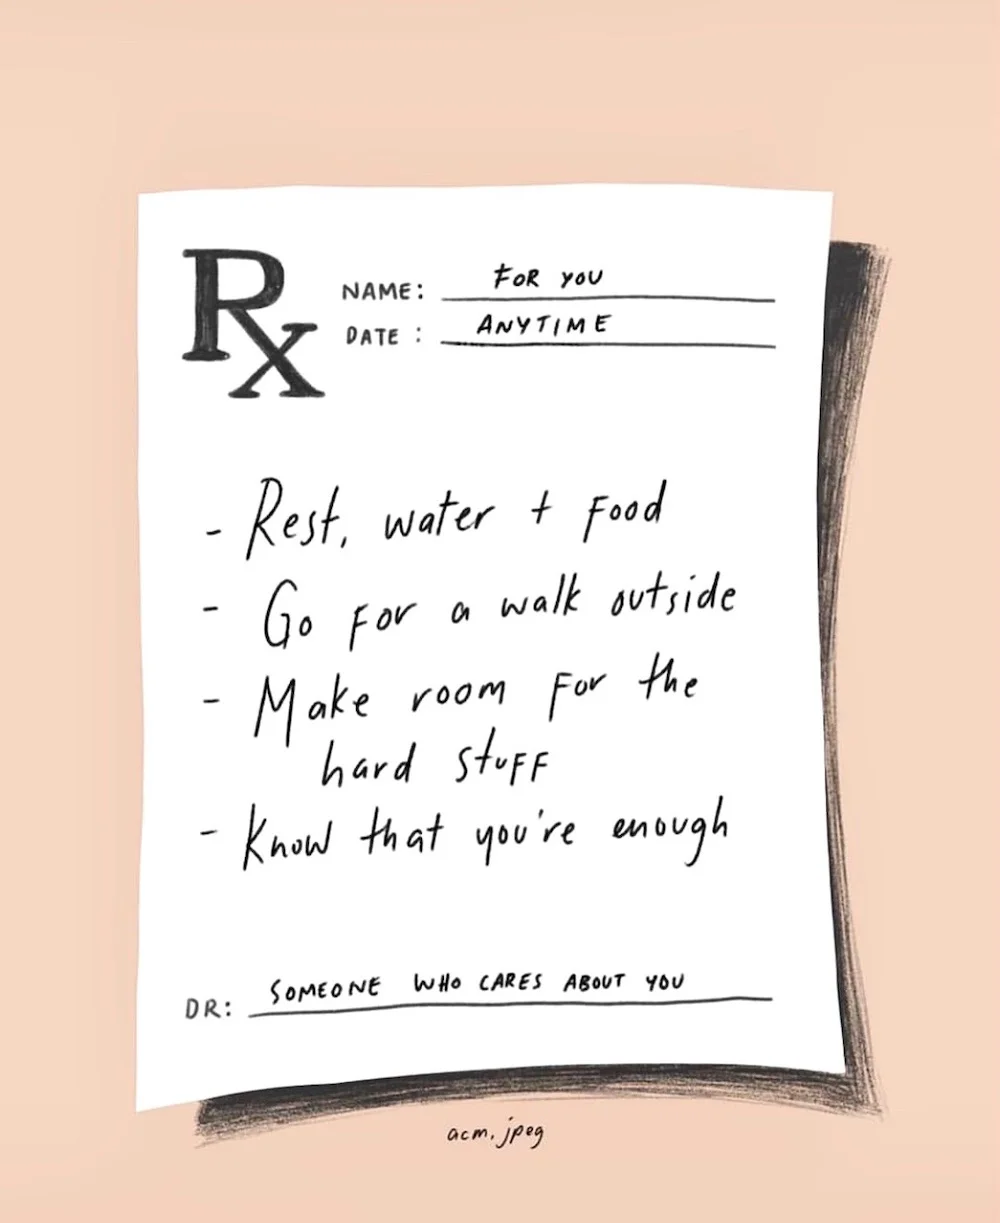 Rx
NAME: FOR YOU
DATE: ANYTIME
- Rest, water + food
- Go for a walk outside
- Make room for the
hard stuff
- Know that you're enough
DR: SOMEONE WHO CARES ABOUT YOU
acm.jpeg